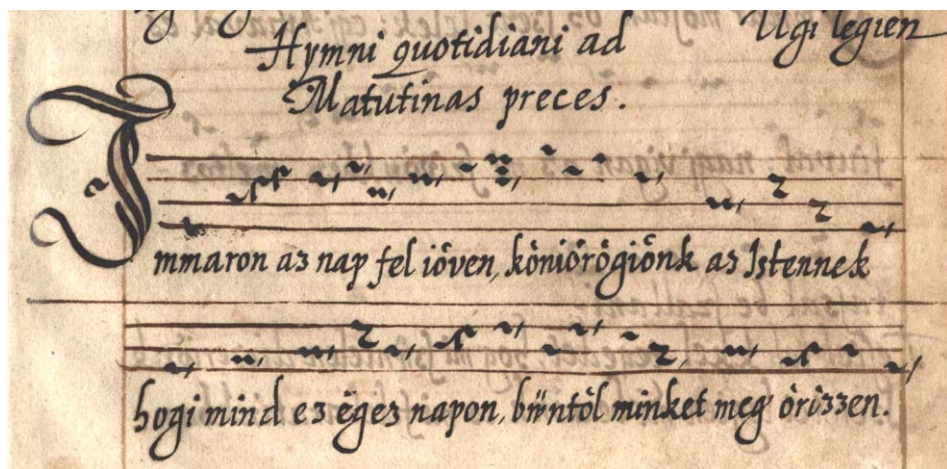 Ugi legien
Hymni quotidiani ad
Matutinas preces.
Immaron az nap fel iöven, köniörögiönk az Istennek
hogi mind ez égez napon, bwntöl minket meg örizzen.